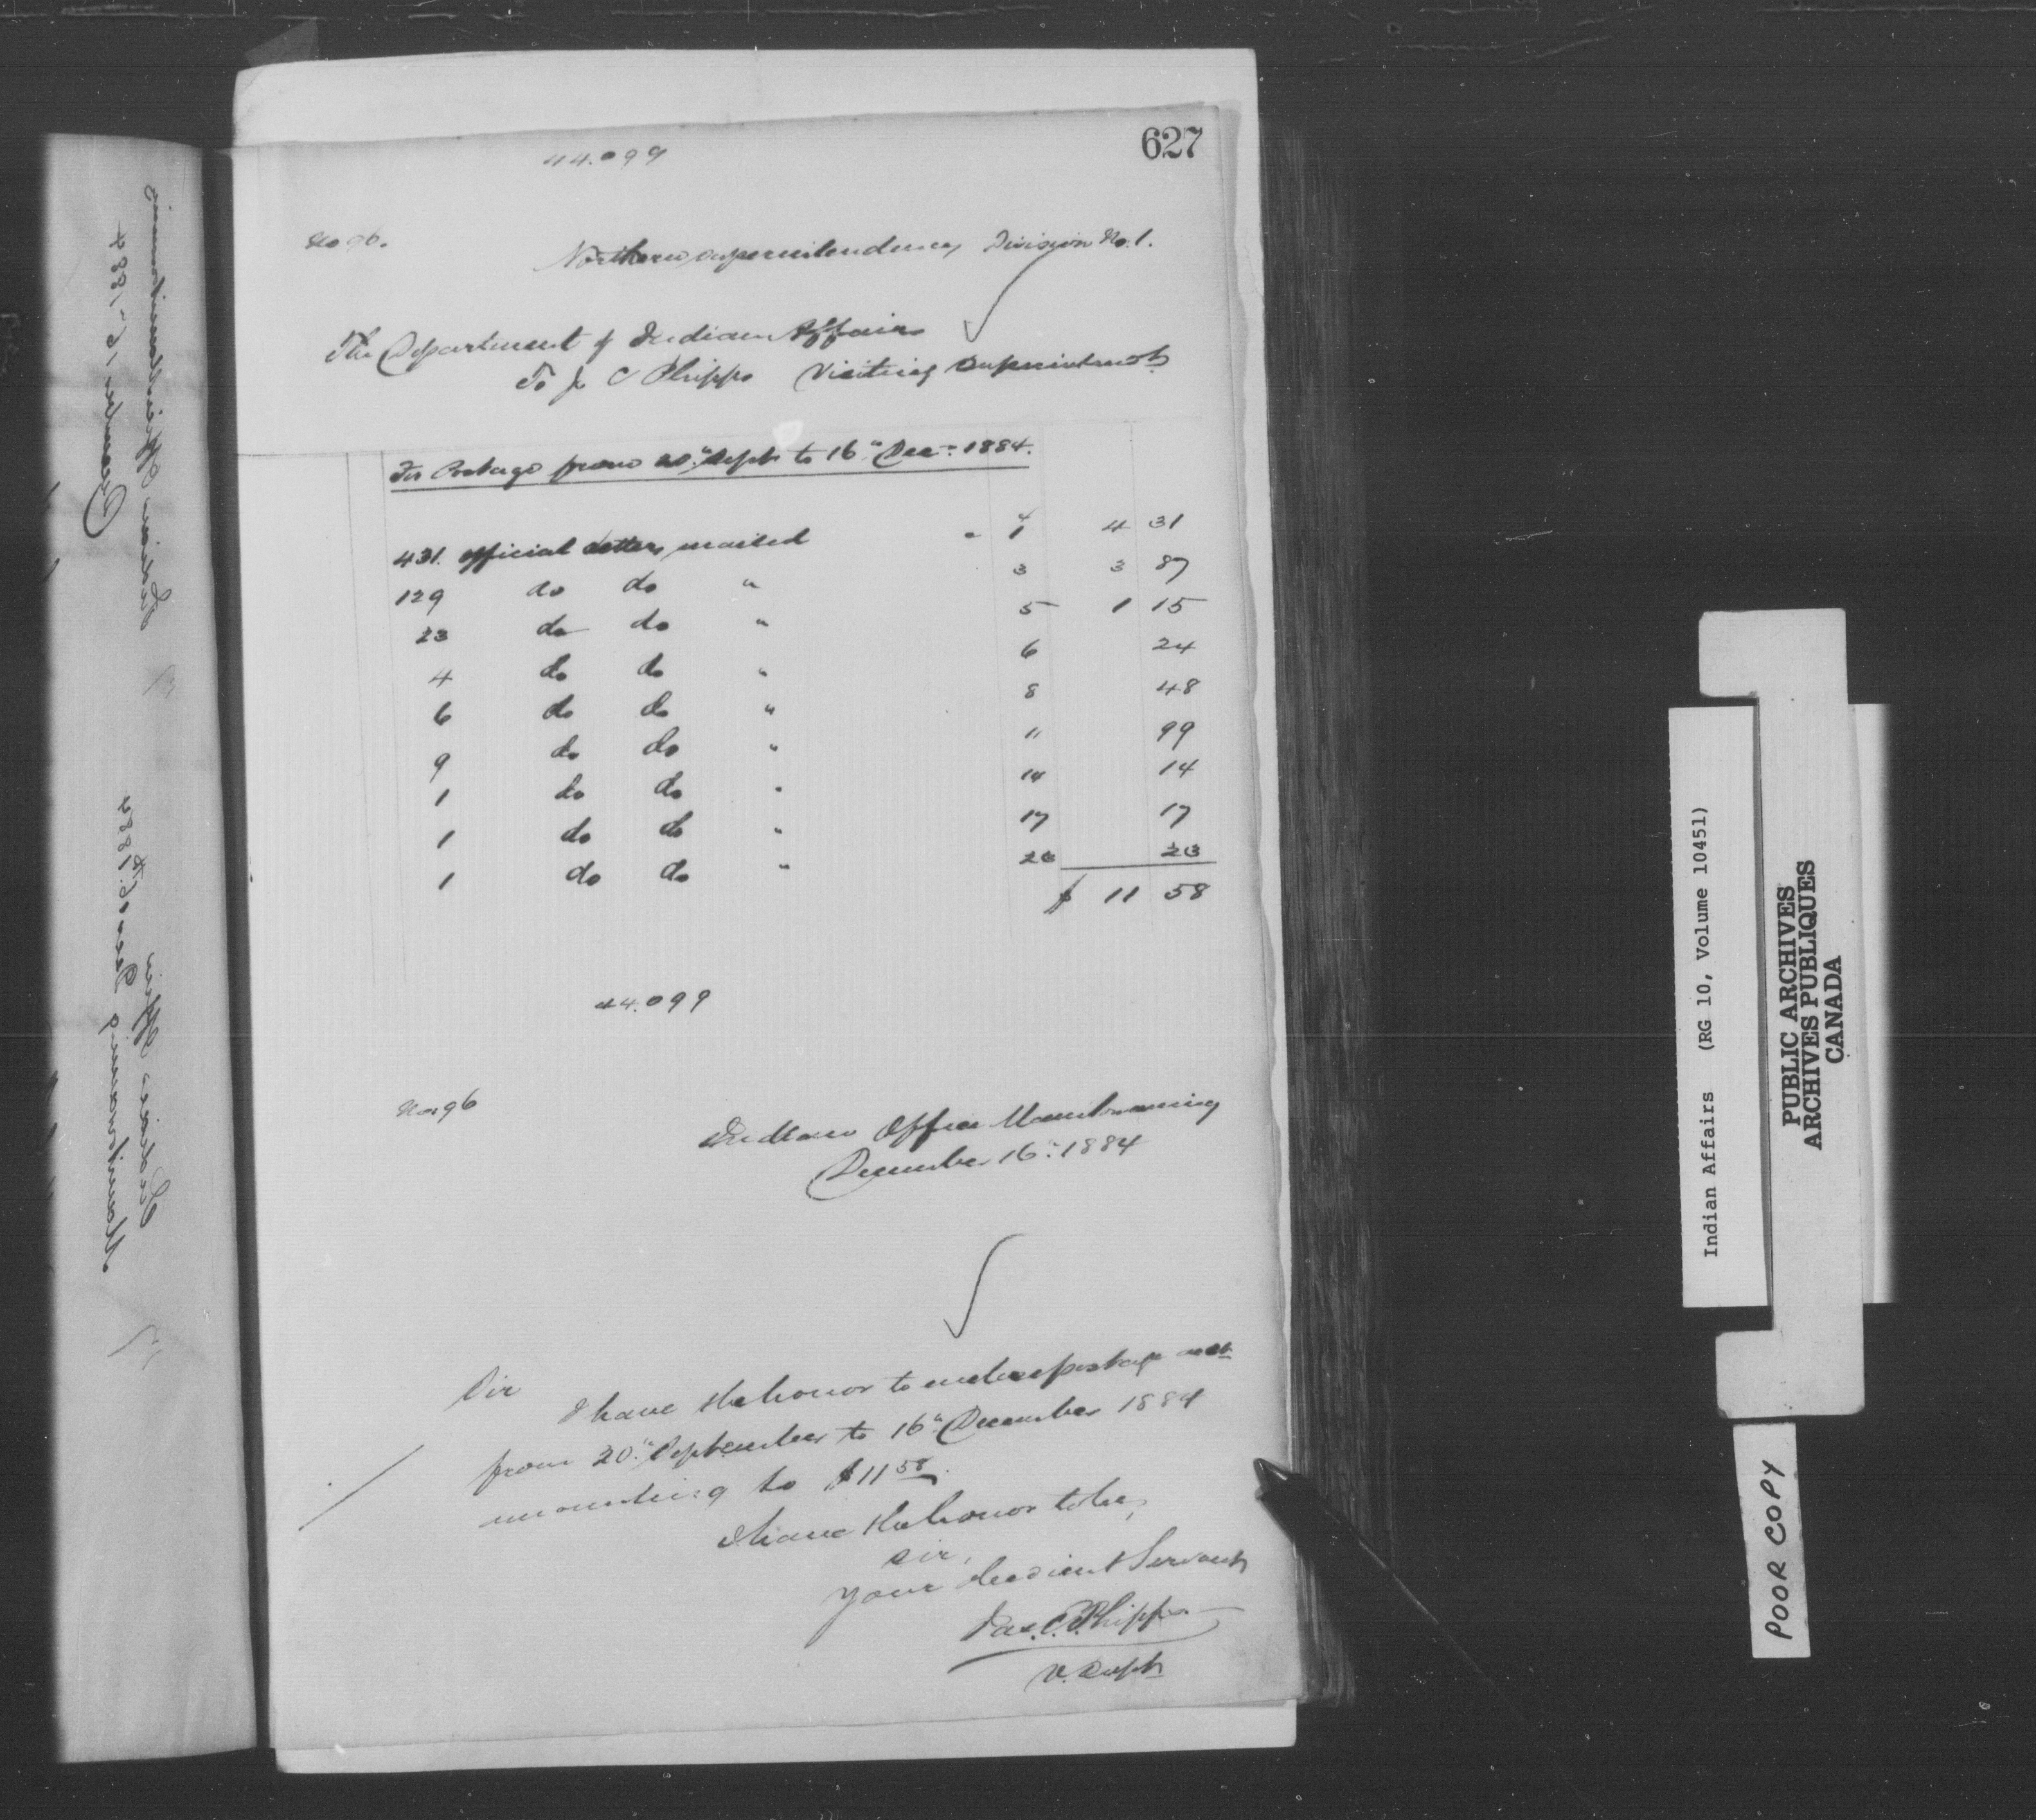 627
44.099
No 96.
Northern Superintendency Division No. 1.
The Department of Indian Affairs
To J C Phipps Visiting Superintendent
For Postage from 20" Sept to 16" Dec 1884.
431. official letters mailed - 1 4 31
129 do do " 3 3 87
23 do do " 5 1 15
4 do do " 6 24
6 do do " 8 48
9 do do " 11 99
1 do do " 14 14
1 do do " 17 17
1 do do " 23 23
$ 11 58
44.099
No 96
Indian Office Manitowaning
December 16" 1884
Sir
I have the honor to enclose postage acct
from 20" September to 16" December 1884
amounting to $11 58.
I have the honor to be,
Sir,
Your obedient Servant
Jas. C. Phipps
V. Supt
Indian Affairs (RG 10, Volume 10451)
PUBLIC ARCHIVES
ARCHIVES PUBLIQUES
CANADA
POOR COPY